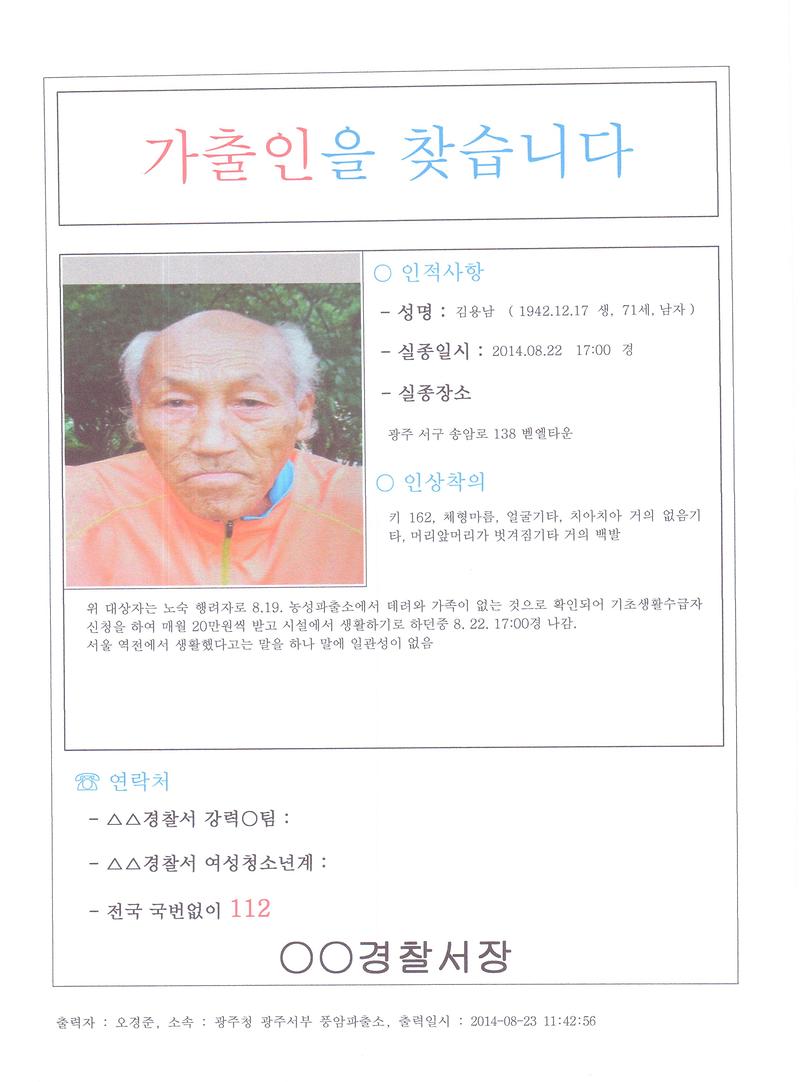 가출인을 찾습니다
○ 인적사항
- 성명 : 김용남 ( 1942.12.17 생, 71세, 남자 )
- 실종일시 : 2014.08.22 17:00 경
- 실종장소
광주 서구 송암로 138 벧엘타운
○ 인상착의
키 162, 체형마름, 얼굴기타, 치아치아 거의 없음기
타, 머리앞머리가 벗겨짐기타 거의 백발
위 대상자는 노숙 행려자로 8.19. 농성파출소에서 데려와 가족이 없는 것으로 확인되어 기초생활수급자
신청을 하여 매월 20만원씩 받고 시설에서 생활하기로 하던중 8. 22. 17:00경 나감.
서울 역전에서 생활했다고는 말을 하나 말에 일관성이 없음
☏ 연락처
- △△경찰서 강력○팀 :
- △△경찰서 여성청소년계 :
- 전국 국번없이 112
○○경찰서장
출력자 : 오경준, 소속 : 광주청 광주서부 풍암파출소, 출력일시 : 2014-08-23 11:42:56